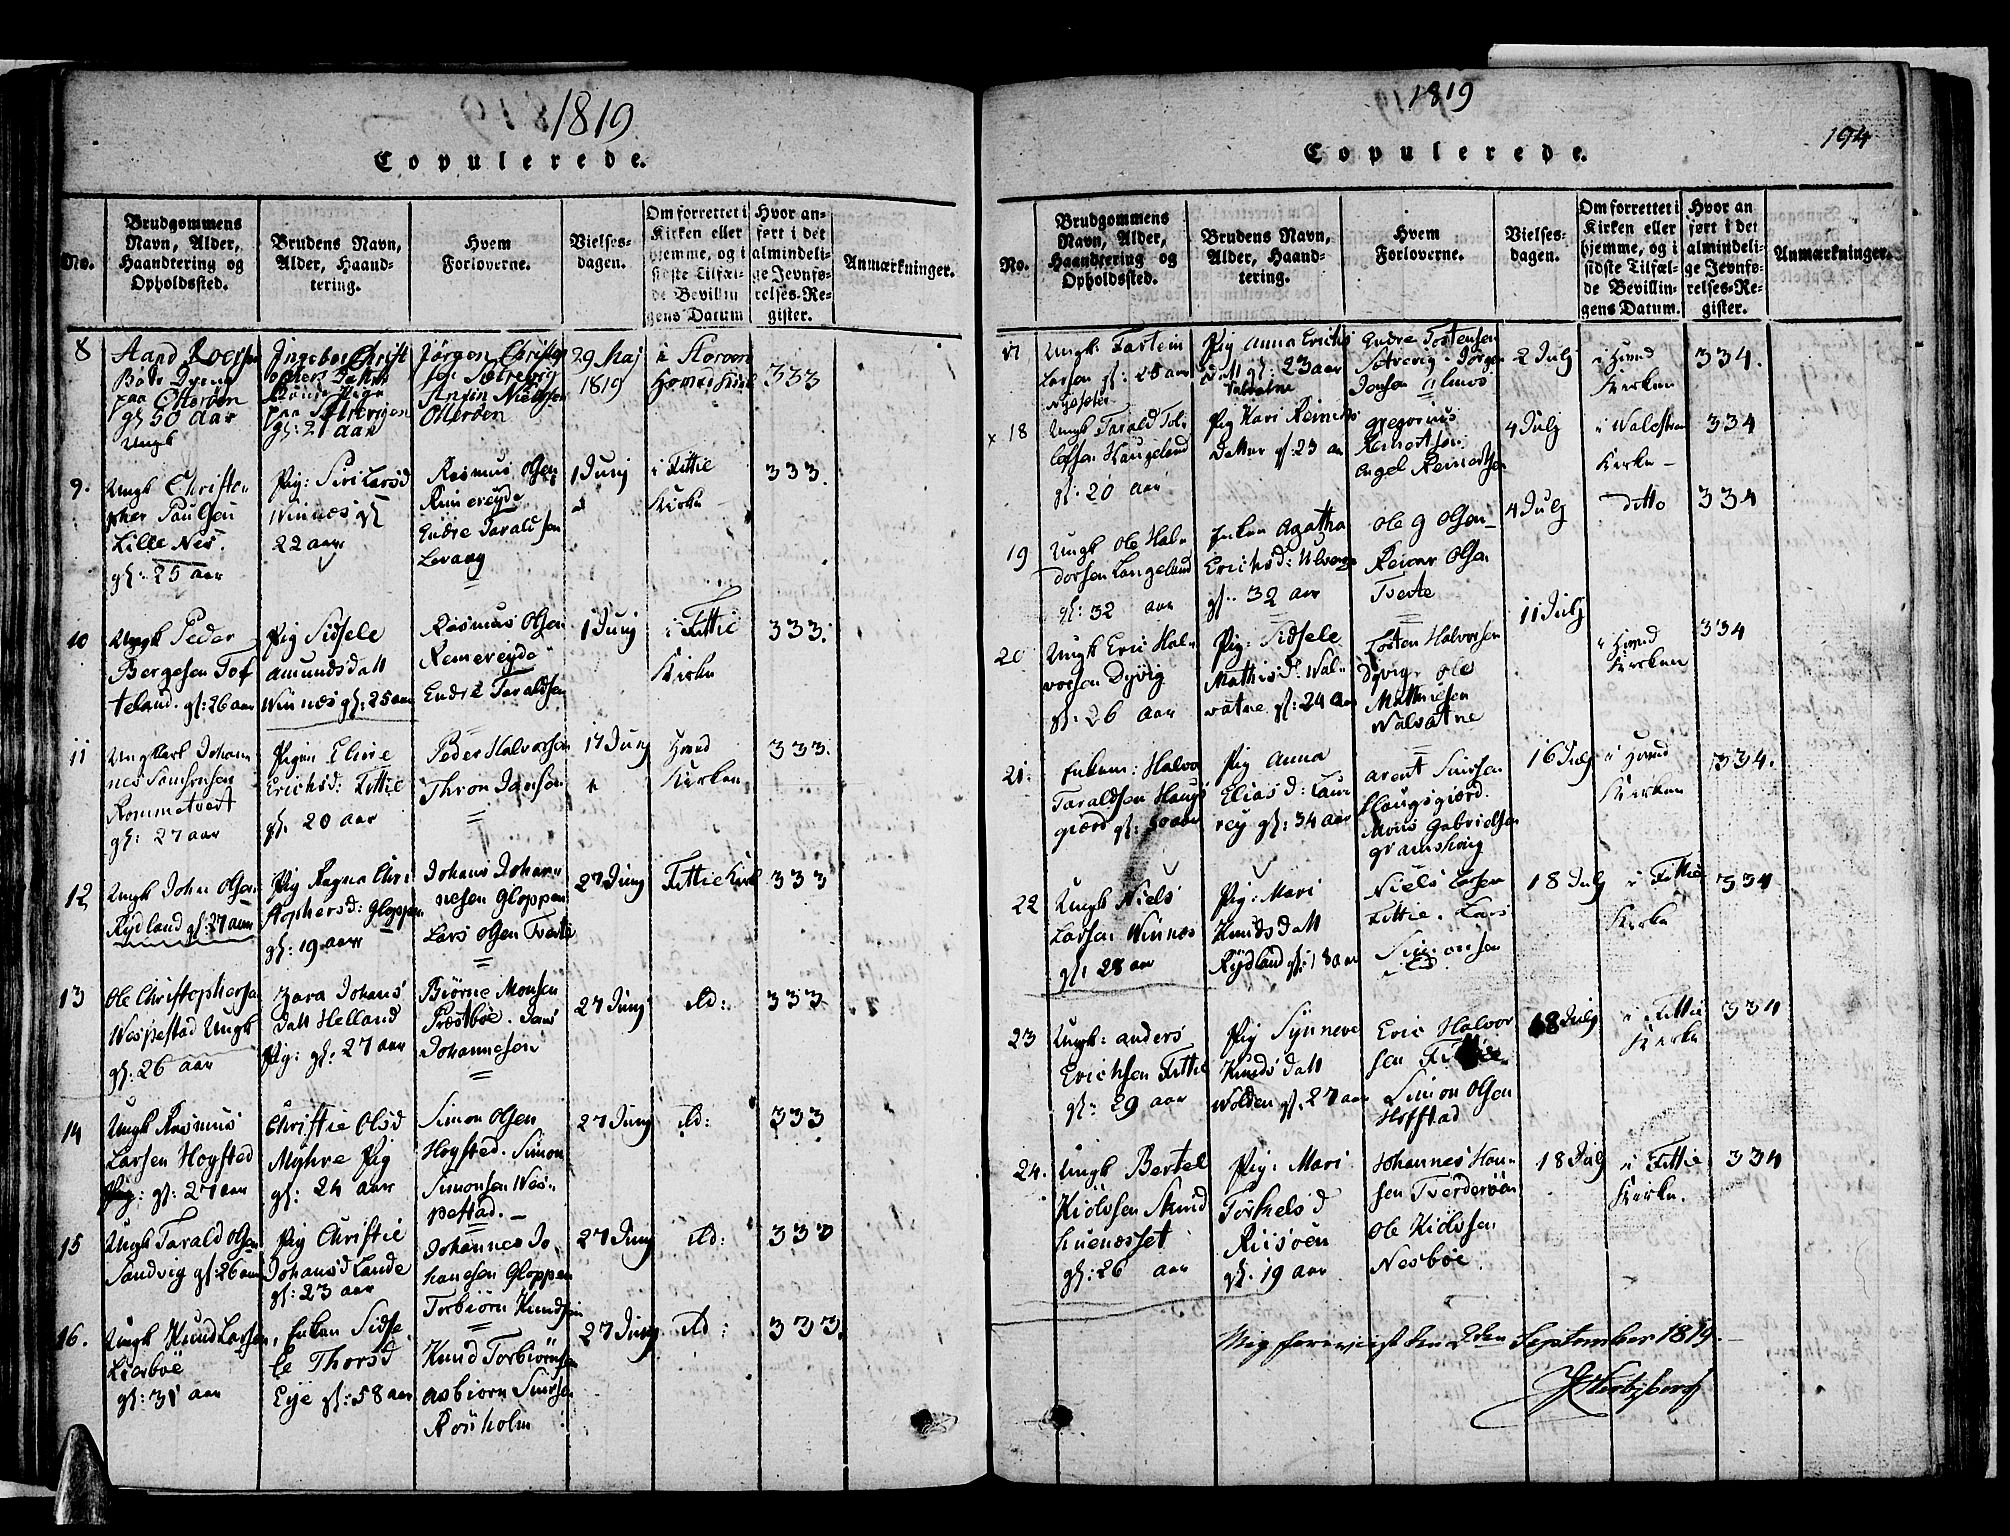 1819
Copulerede.
No.
Brudgommens
Navn, Alder,
Haandtering og
Opholdssted.
Brudens Navn,
Alder, Haand-
tering.
Hvem
Forloverne.
Vielses-
dagen.
Om forrettet i
Kirken eller
hjemme, og i
sidste Tilfæl-
de Bevillin
gens Datum
Hvor an-
ført i det
almindeli-
ge Jevnfø-
relses-Re-
gister.
Anmærkninger.
8
gl 50 aar
Ungk
gl: 21 aar
Jørgen Christen
Osteröen
29 Maj
1819
333
9.
Ungk Christo
pher Paulsen
Lille Nes.
gl: 25 aar
Pig: Siri Larsd
Winnes gl
22 aar
Rasmus Olsen
Remereyde
Endre Taraldsen
Levaag
1 Junj
i Fittie
Kirke
333.
10
Ungk Peder
Bergesen Tof
teland. gl: 26 aar
Pig Sidsele
Amundsdatt
Winnes gl: 25 aar
Rasmus Olsen
Remereyde
Endre Taraldsen
1 Junj
i Fittie
Kirke
333.
11
Ungkarl Johan
nes Samsonsen
Rommetvedt
gl: 27 aar
Pigen Eline
Erichsd: Fittie
gl. 20 aar
Peder Halvorsen
Thron Jansen
17 Junj
Kirken
333.
12
Ungk John Olsen
Rydland gl: 27 aar
Pig Ragna Chri
stophersd: Gloppen
gl: 19 aar
Johans Johan
nesen Gloppen
Lars Olsen Tverte
27 Junj
Fittie Kirk
333
13
Ole Christophersen
Wespestad Ungk
gl: 26 aar
Zara Johans
datt Helland
Pig: gl: 27 aar
Biörne Monsen
Præstböe. Jans
Johannesen
27 Junj
ild:
333
14
Ungk Rasmus
Larsen Hogsted
gl: 27 aar
Christie Olsd
Myhre Pig
gl: 24 aar
Simon Olsen
Hogsted. Simon
Simonsen Wes-
pestad.
27 Junj
ild:
333
15
Ungk Tarald Olsen
Sandvig gl: 26 aar
Pig Christie
Johansd Lande
gl: 23 aar
Johannes Jo
hansen Gloppen
Torbiörn Knudsen
27 Junj
ild:
333
16.
Ungk Knud Larsen
gl: 31 aar
Enken Sidse
le Thorsd
Eye gl: 58 aar
Knud Torbiörnsen
Asbiörn Siursen
Rönholm
27 Junj
ild:
333.
1819
194
Copulerede.
No.
Brudgommens
Navn, Alder,
Haandtering og
Opholdssted.
Brudens Navn,
Alder, Haand-
tering.
Hvem
Forloverne.
Vielses-
dagen.
Om forrettet i
Kirken eller
hjemme, og i
sidste Tilfæl-
de Bevillin-
gens Datum.
Hvor an
ført i det
almindeli-
ge Jevnfø-
relses-Re-
gister.
Anmærkninger.
17
Larsen gl: 25 aar
Pig Anna Erichs
datt gl: 23 aar
Valvatne
Endre Tostensen
Sætrevig. Jörgen
Jonsen Almos
2 Julj
Kirken
334.
x 18
Ungk Tarald Tol
lefsen Haugeland
gl: 20 aar
Pig Kari Reinerts
Datter gl: 23 aar
Gregorius
Reinertsen
Engel Reinertsen
4 Julj
Kirke
334
19
Ungk Ole Hal-
dorsen Langeland
gl: 32 aar
Enken Agatha
Erichsd: Ulvenge
gl: 32 aar
Ole G Olsen
Reinar Olsen
Tverte
4 Julj
ditto
334
20
Ungk Eric Hal-
vorsen Dyvig
gl: 26 aar
Pig: Sidsele
Mathisd: Val-
vatne gl: 24 aar
Tosten Halvorsen
Dyvig. Ole
Mathiesen
Valvatne
11 Julj
Kirken
334
21.
Enkem: Halvor
Taraldsen Haugs
giærd gl: 50 aar
Pig Anna
Eliasd: Laur
vey gl: 34 aar
Arent Siursen
Haugsgiærd.
Mons Gabrielsen
Gramshoug
16 Julj
Kirken
334.
22
Ungk Niels
Larsen Winnes
gl: 28 aar
Pig: Mari
Knudsdatt
Rydland gl: 18 aar
Niels Larsen
Fittie. Lars
Simonsen
18 Julj
i Fittie
Kirke
334
23
Ungk: Anders
Erichsen Fittie
gl: 29 aar
Pig Synneve
Knudsdatt
Wolden gl: 27 aar
Eric Halvor
sen Fittie
Simon Olsen
Hoffstad
18 Julj
i Fittie
Kirke
334
24.
Ungk Bertel
gl: 26 aar
Pig: Mari
Torkelsd
Riisöen
gl. 19 aar
Johannes Han-
sen Tverderöen
Ole Kiölvsen
Nesböe.
18 Julj
i Fittie
Kirke.
334
September 1819.